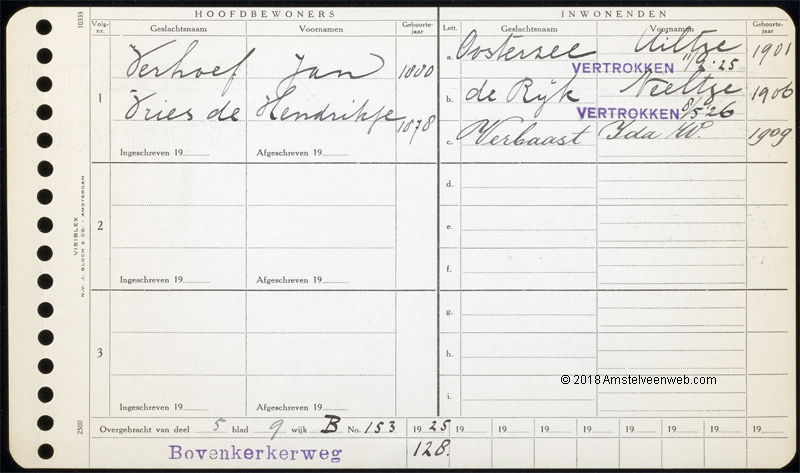 HOOFDBEWONERS
INWONENDEN
10333
Volg-nr.
Geslachtsnaam
Voornamen
Geboorte-jaar
Lett.
Geslachtsnaam
Voornamen
Geboorte-jaar
1
Verhoef Jan
Vries de Hendrikje 1878
Ingeschreven 19
Afgeschreven 19
a. Oosterzee Ailtze 1901
VERTROKKEN 11/9.25
b. de Rijk Neeltze 1906
VERTROKKEN 8/5 26
c. Verbaast Ida W. 1909
2
Ingeschreven 19
Afgeschreven 19
d.
e.
f.
3
Ingeschreven 19
Afgeschreven 19
g.
h.
i.
VISIBLEX
N.V. J. BLOCH & CO. - AMSTERDAM
2500
© 2018 Amstelveenweb.com
Overgebracht van deel 5 blad 9 wijk B No. 153
19 25 19 19 19 19 19 19 19 19
Bovenkerkerweg
128.